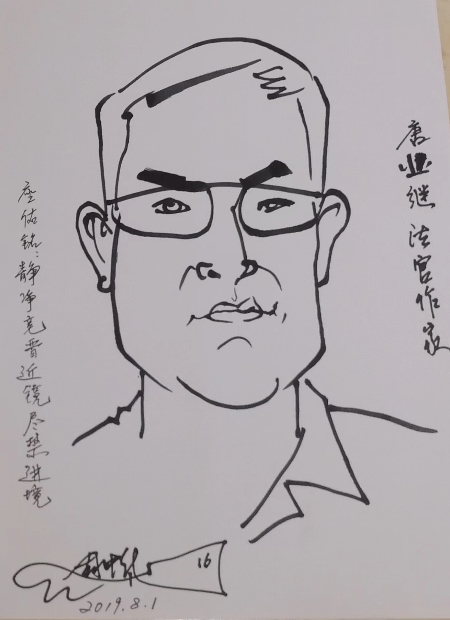 唐业继 法官作家
座佑铭：静净竞晋近镜尽禁进境
16
2019.8.1